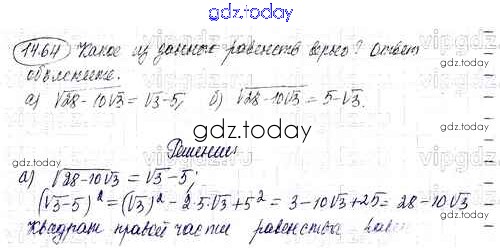 gdz.today
14.64 Какое из данных равенств верно? Ответ
объясните.
а) √28-10√3 = √3-5, б) √28-10√3 = 5-√3.
gdz.today
Решение
а) √28-10√3 = √3-5;
(√3-5)² = (√3)² - 2·5·√3 + 5² = 3-10√3+25 = 28-10√3
Квадрат правой части равенства равен
gdz.today